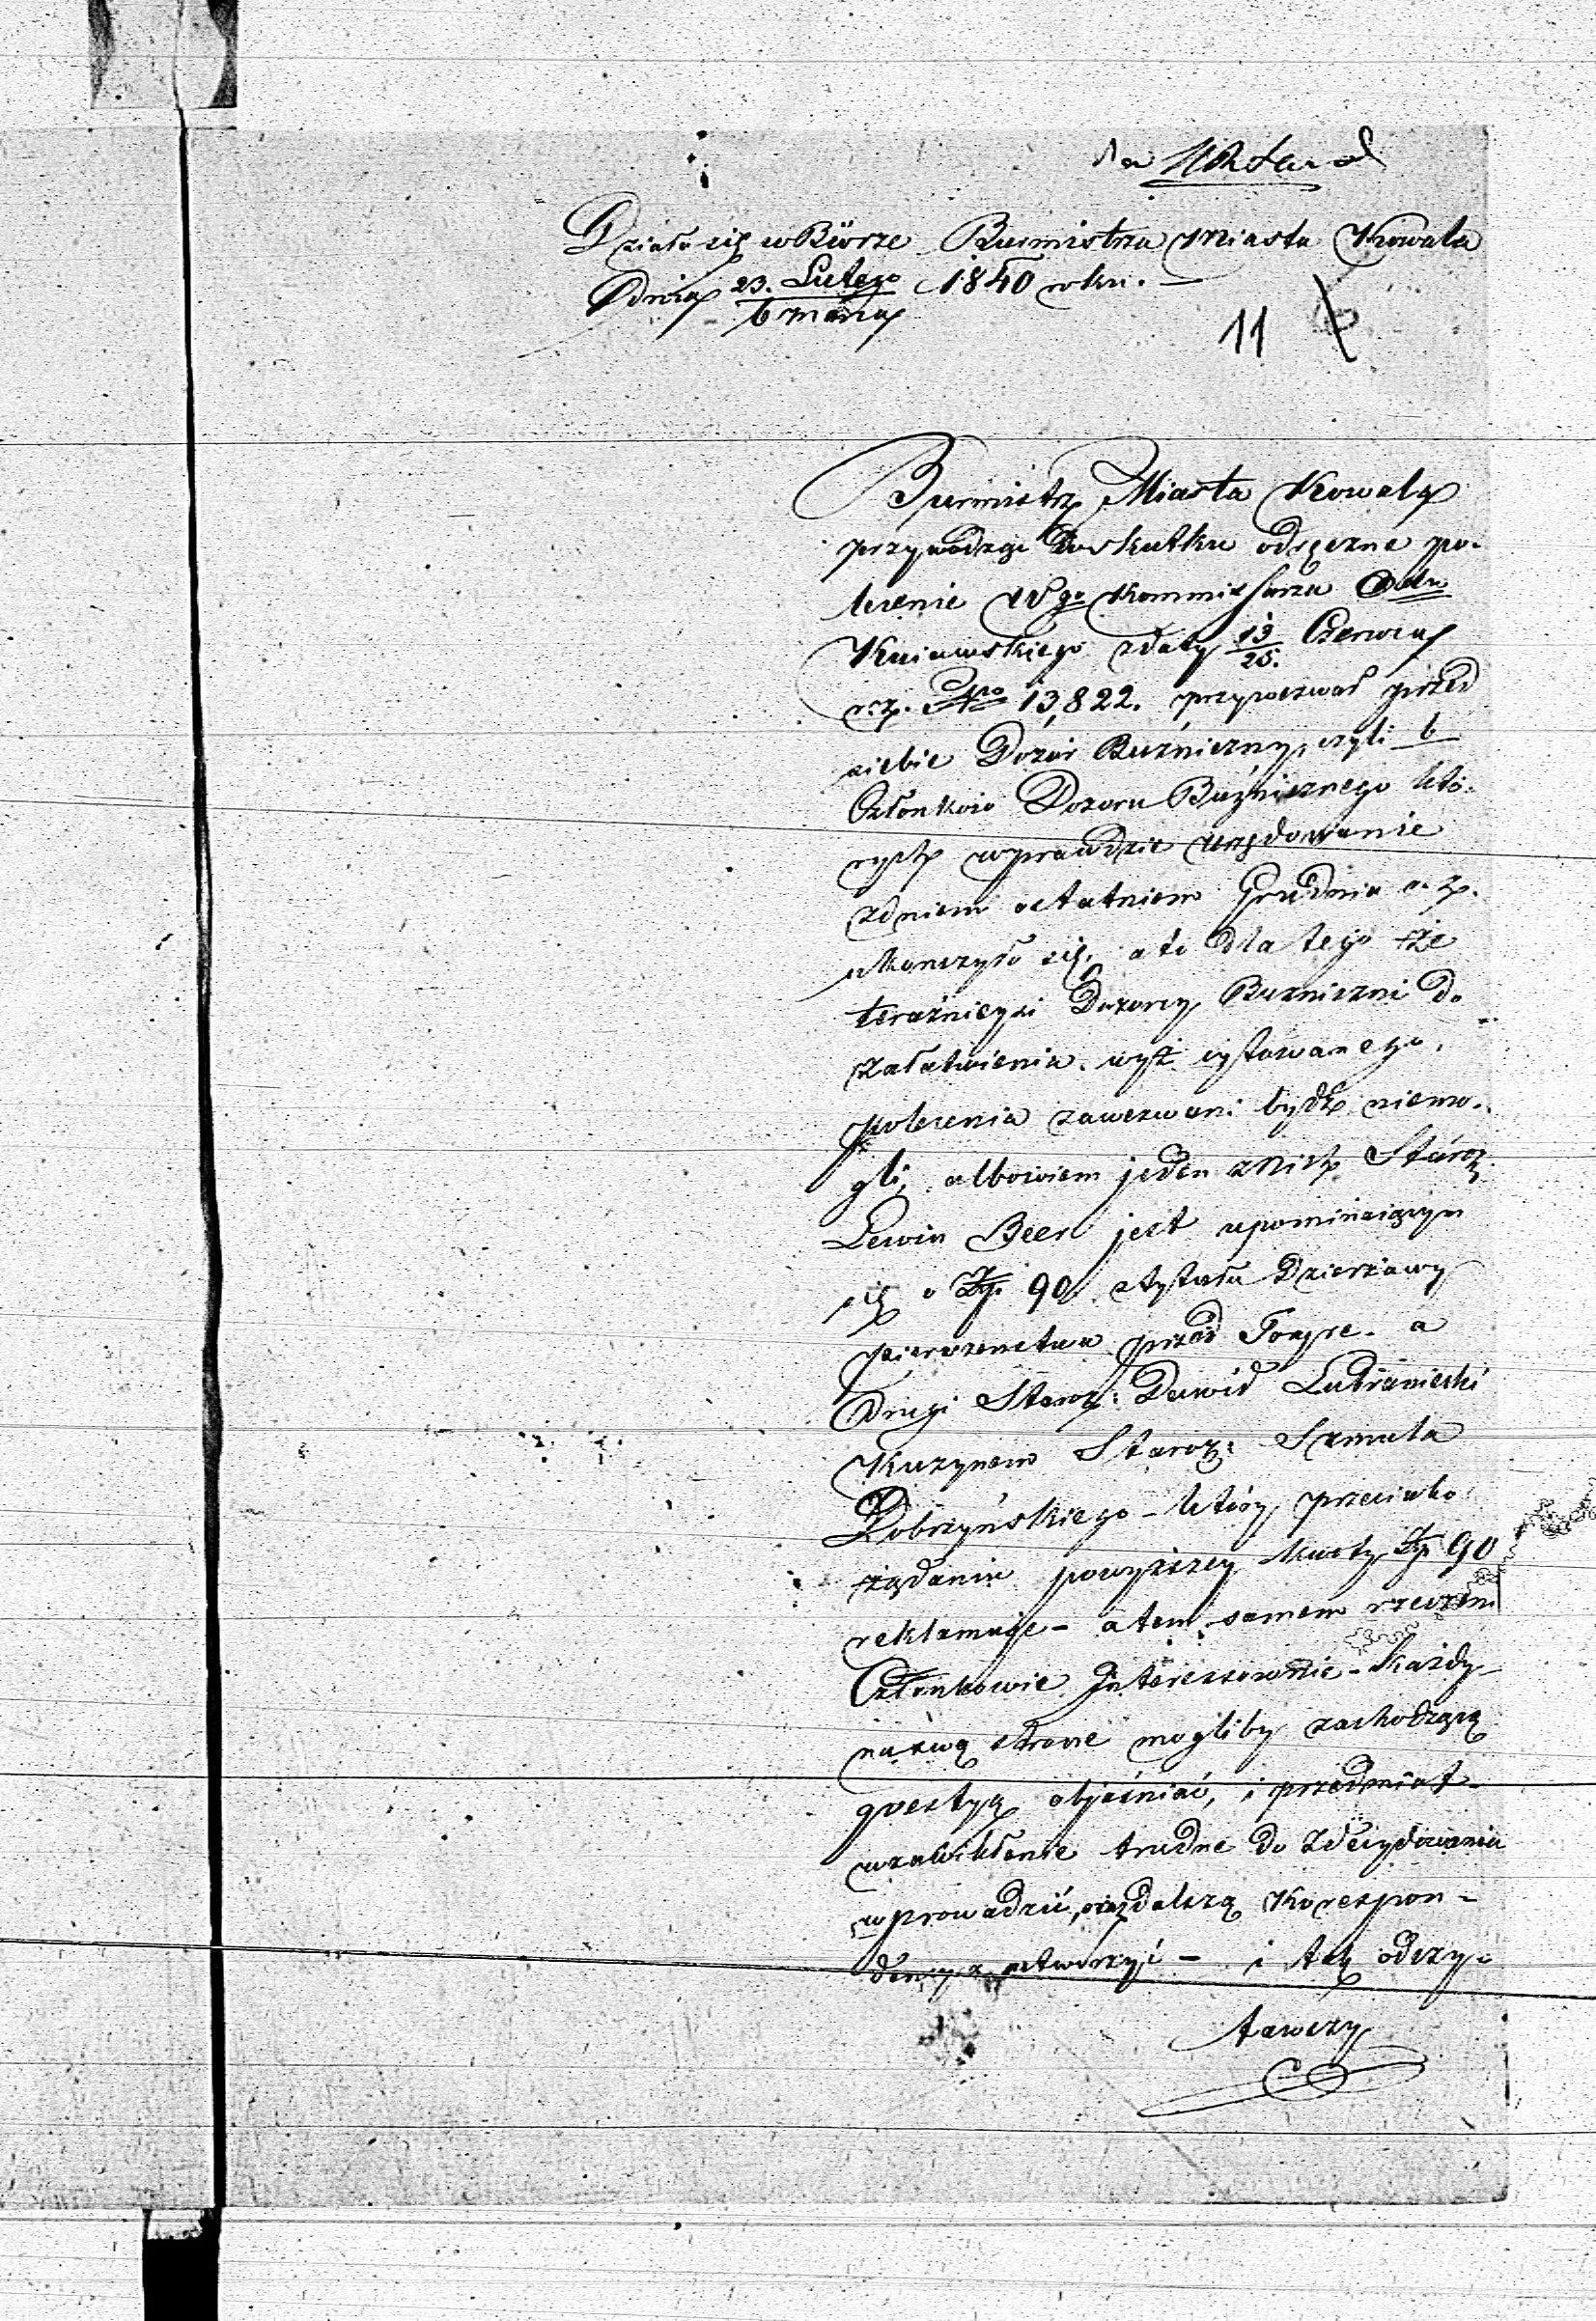 Działo się w Biórze Burmistrza Miasta Kowala
Dnia 23. Lutego 1840 roku. —
6 Marca
11
Burmistrz Miasta Kowala
przywodząc do skutku odręczne po-
lecenie Wgo Kommissarza Obdu
Kujawskiego z daty 13/25. Czerwca
r. z. No 13,822. przyzwał przed
siebie Dozór Bużniczny, czyli b
Członków Dozoru Bużnicznego któ-
rych wprawdzie urzędowanie
z dniem ostatniem Grudnia r. z.
ukonczyło się, a to dla tego że
teraźnieysi Dozorcy Bużniczni do
załatwienia wyż cytowanego
polecenia zawezwani bydź niemo-
gli, albowiem jeden z nich Staroz.
Lewin Beer jest upominaiącym
się o Złp. 90. z tytułu Dzierżawy
pierwszenstwa przód Torze. a
Drugi Staroz: Dawid Lubraniecki
Kuzynem Staroz: Szmula
Dobrzyńskiego – który przeciwko
żądaniu powyższey kwoty Złp 90
reklamuje – a tem samem rzeczeni
Członkowie Interessownie – każdy
na swą stronę mogliby zachodzącą
qvestyą objaśniać, i przedmiot
w zawikłanie trudne do zdecydowania
wprowadzić, oraz dalszą Korespon-
dencyą utworzyć – i tak odczy-
tawszy